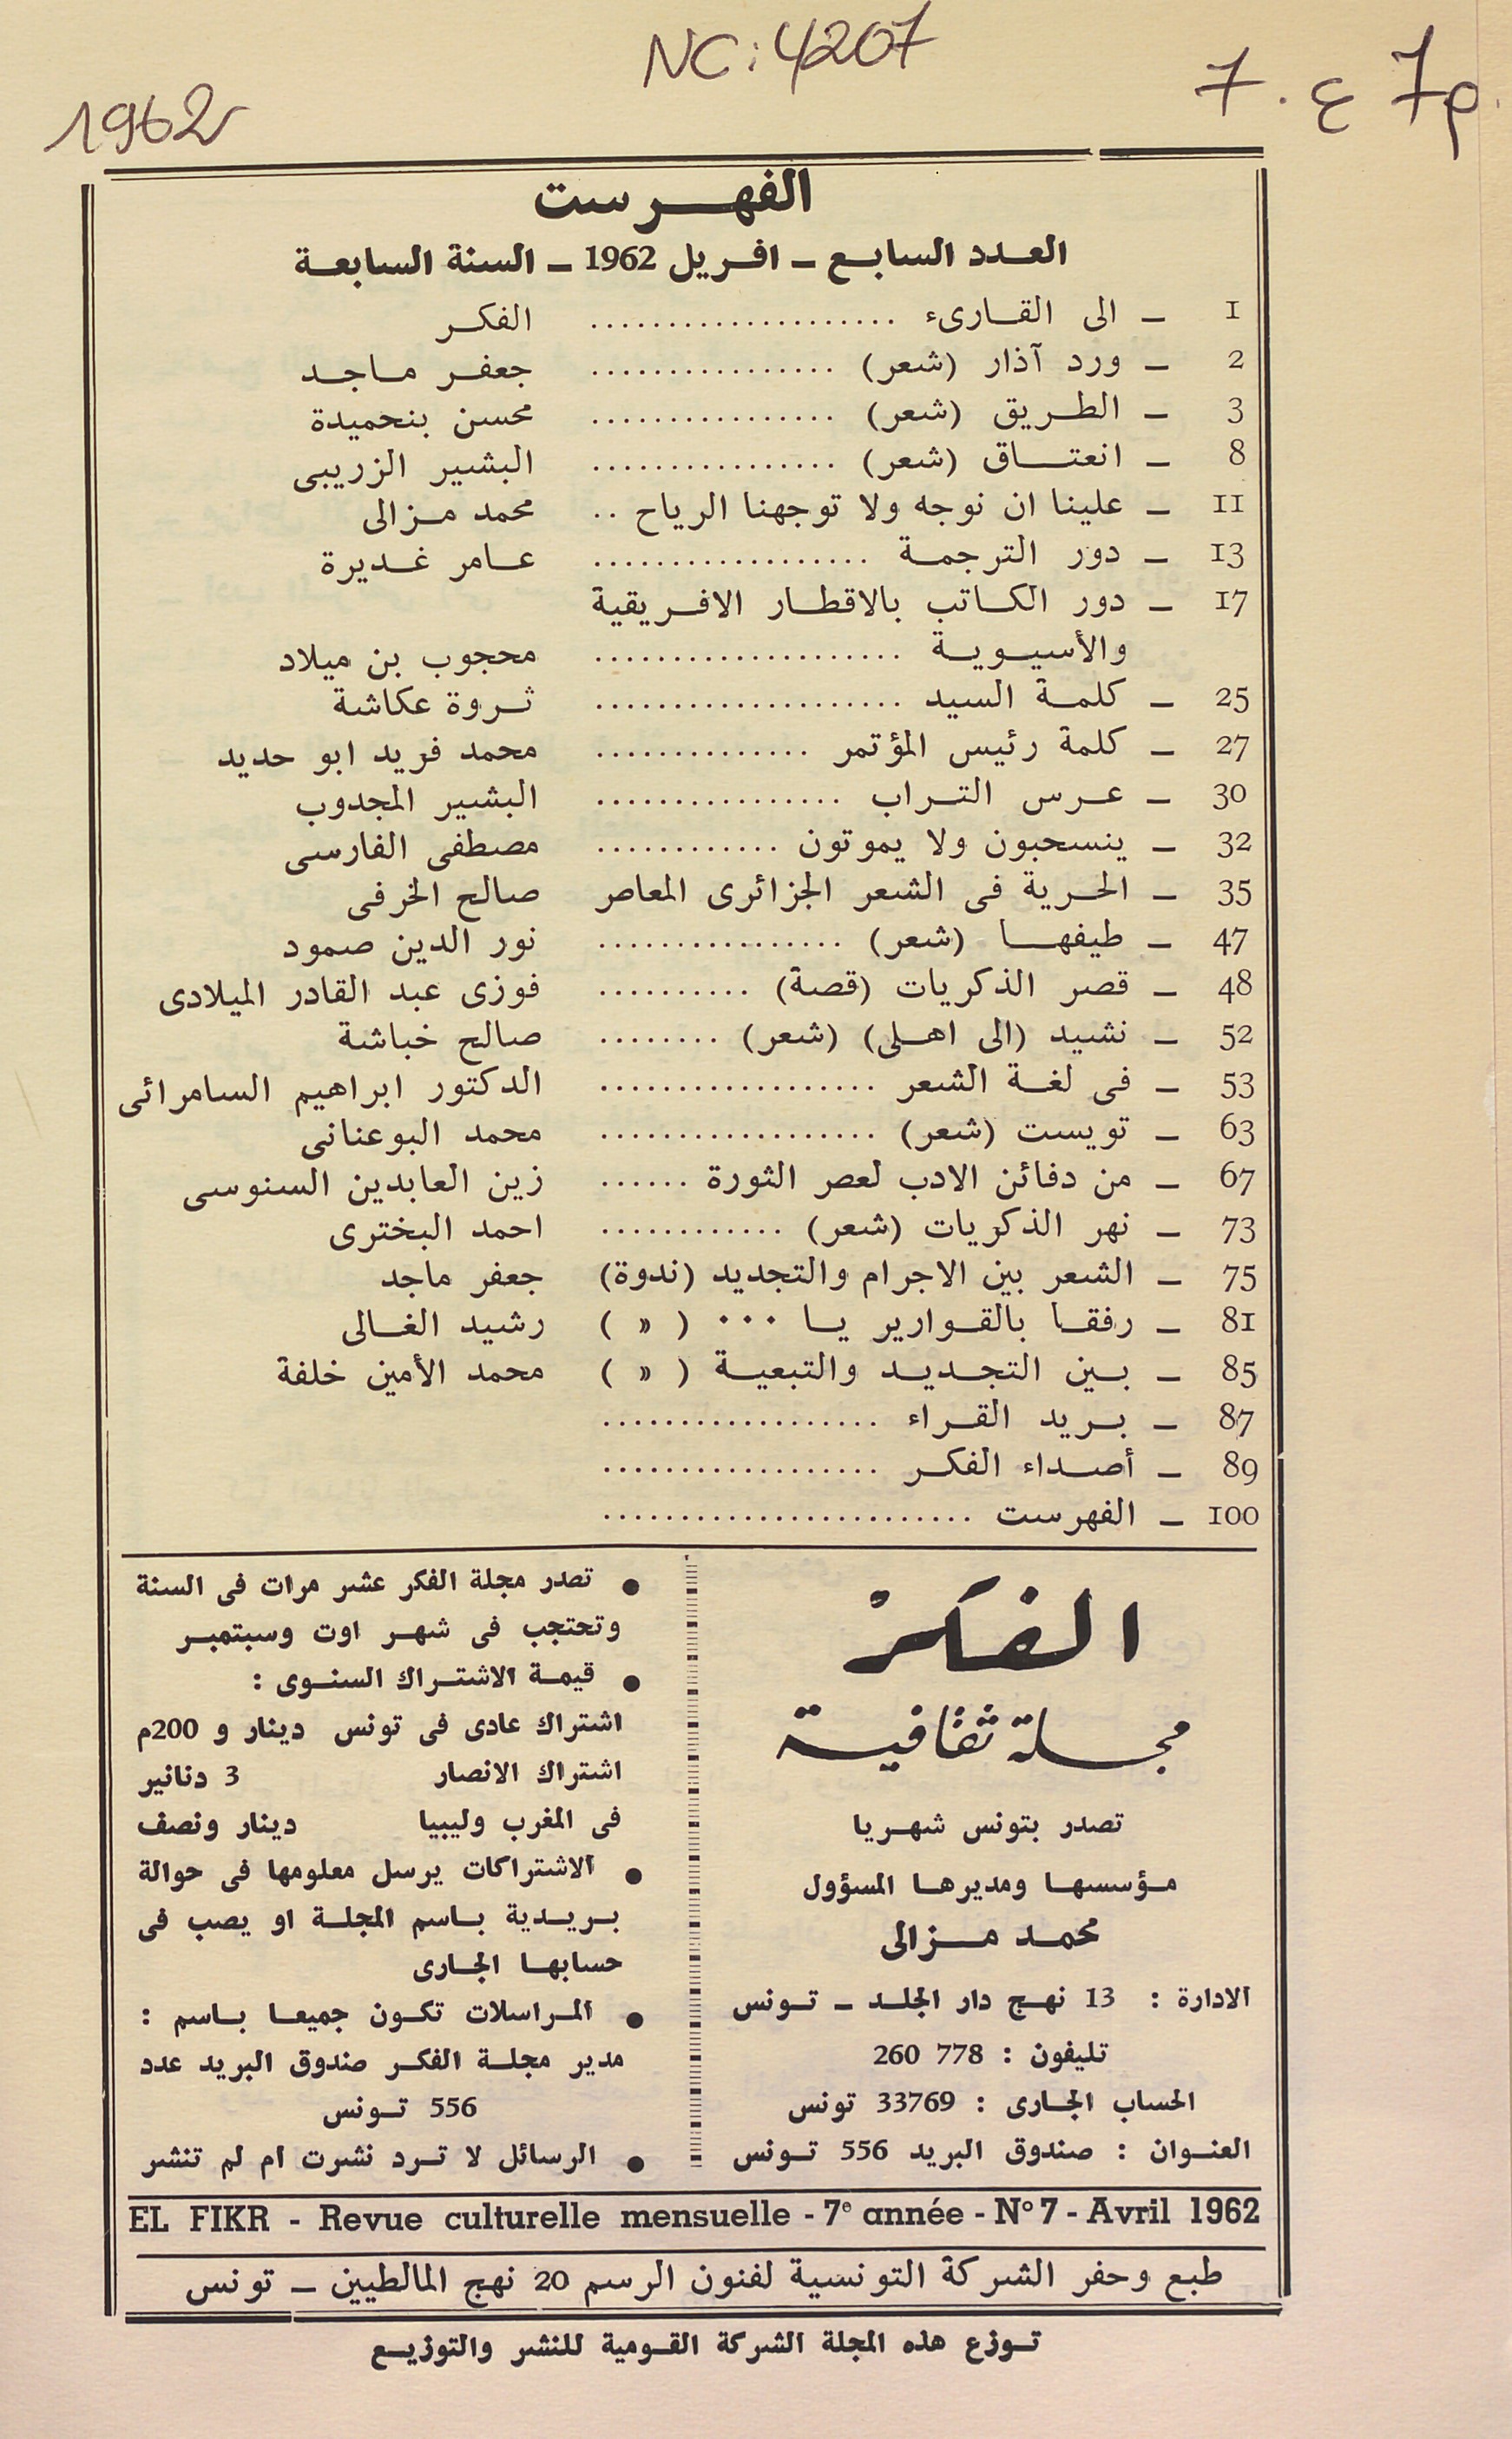 NC: 4207
7 . ع 7 م
1962
الفهرست
العدد السابع – افريل 1962 – السنة السابعة
1 – الى القارىء .................... الفكر
2 – ورد آذار (شعر) ................ جعفر ماجد
3 – الطريق (شعر) ................ محسن بنحميدة
8 – انعتاق (شعر) ................ البشير الزريبى
11 – علينا ان نوجه ولا توجهنا الرياح .. محمد مزالى
13 – دور الترجمة .................. عامر غديرة
17 – دور الكاتب بالاقطار الافريقية
والأسيوية .................... محجوب بن ميلاد
25 – كلمة السيد .................... ثروة عكاشة
27 – كلمة رئيس المؤتمر .............. محمد فريد ابو حديد
30 – عرس التراب ................ البشير المجدوب
32 – ينسحبون ولا يموتون ............ مصطفى الفارسى
35 – الحرية فى الشعر الجزائرى المعاصر صالح الخرفى
47 – طيفها (شعر) ................ نور الدين صمود
48 – قصر الذكريات (قصة) .......... فوزى عبد القادر الميلادى
52 – نشيد (الى اهلى) (شعر) ........ صالح خباشة
53 – فى لغة الشعر .................. الدكتور ابراهيم السامرائى
63 – تويست (شعر) .................. محمد البوعنانى
67 – من دفائن الادب لعصر الثورة ...... زين العابدين السنوسى
73 – نهر الذكريات (شعر) ............ احمد البخترى
75 – الشعر بين الاجرام والتجديد (ندوة) جعفر ماجد
81 – رفقا بالقوارير يا ... ( » ) رشيد الغالى
85 – بين التجديد والتبعية ( » ) محمد الأمين خلفة
87 – بريد القراء ..................
89 – أصداء الفكر ..................
100 – الفهرست ........................
الفكر
مجلة ثقافية
تصدر بتونس شهريا
مؤسسها ومديرها المسؤول
محمد مزالى
الادارة : 13 نهج دار الجلد – تونس
تليفون : 778 260
الحساب الجارى : 33769 تونس
العنوان : صندوق البريد 556 تونس
● تصدر مجلة الفكر عشر مرات فى السنة
وتحتجب فى شهر اوت وسبتمبر
● قيمة الاشتراك السنوى :
اشتراك عادى فى تونس دينار و 200م
اشتراك الانصار 3 دنانير
فى المغرب وليبيا دينار ونصف
● الاشتراكات يرسل معلومها فى حوالة
بريدية باسم المجلة او يصب فى
حسابها الجارى
● المراسلات تكون جميعا باسم :
مدير مجلة الفكر صندوق البريد عدد
556 تونس
● الرسائل لا ترد نشرت ام لم تنشر
EL FIKR - Revue culturelle mensuelle - 7e année - N° 7 - Avril 1962
طبع وحفر الشركة التونسية لفنون الرسم 20 نهج المالطيين – تونس
توزع هذه المجلة الشركة القومية للنشر والتوزيع